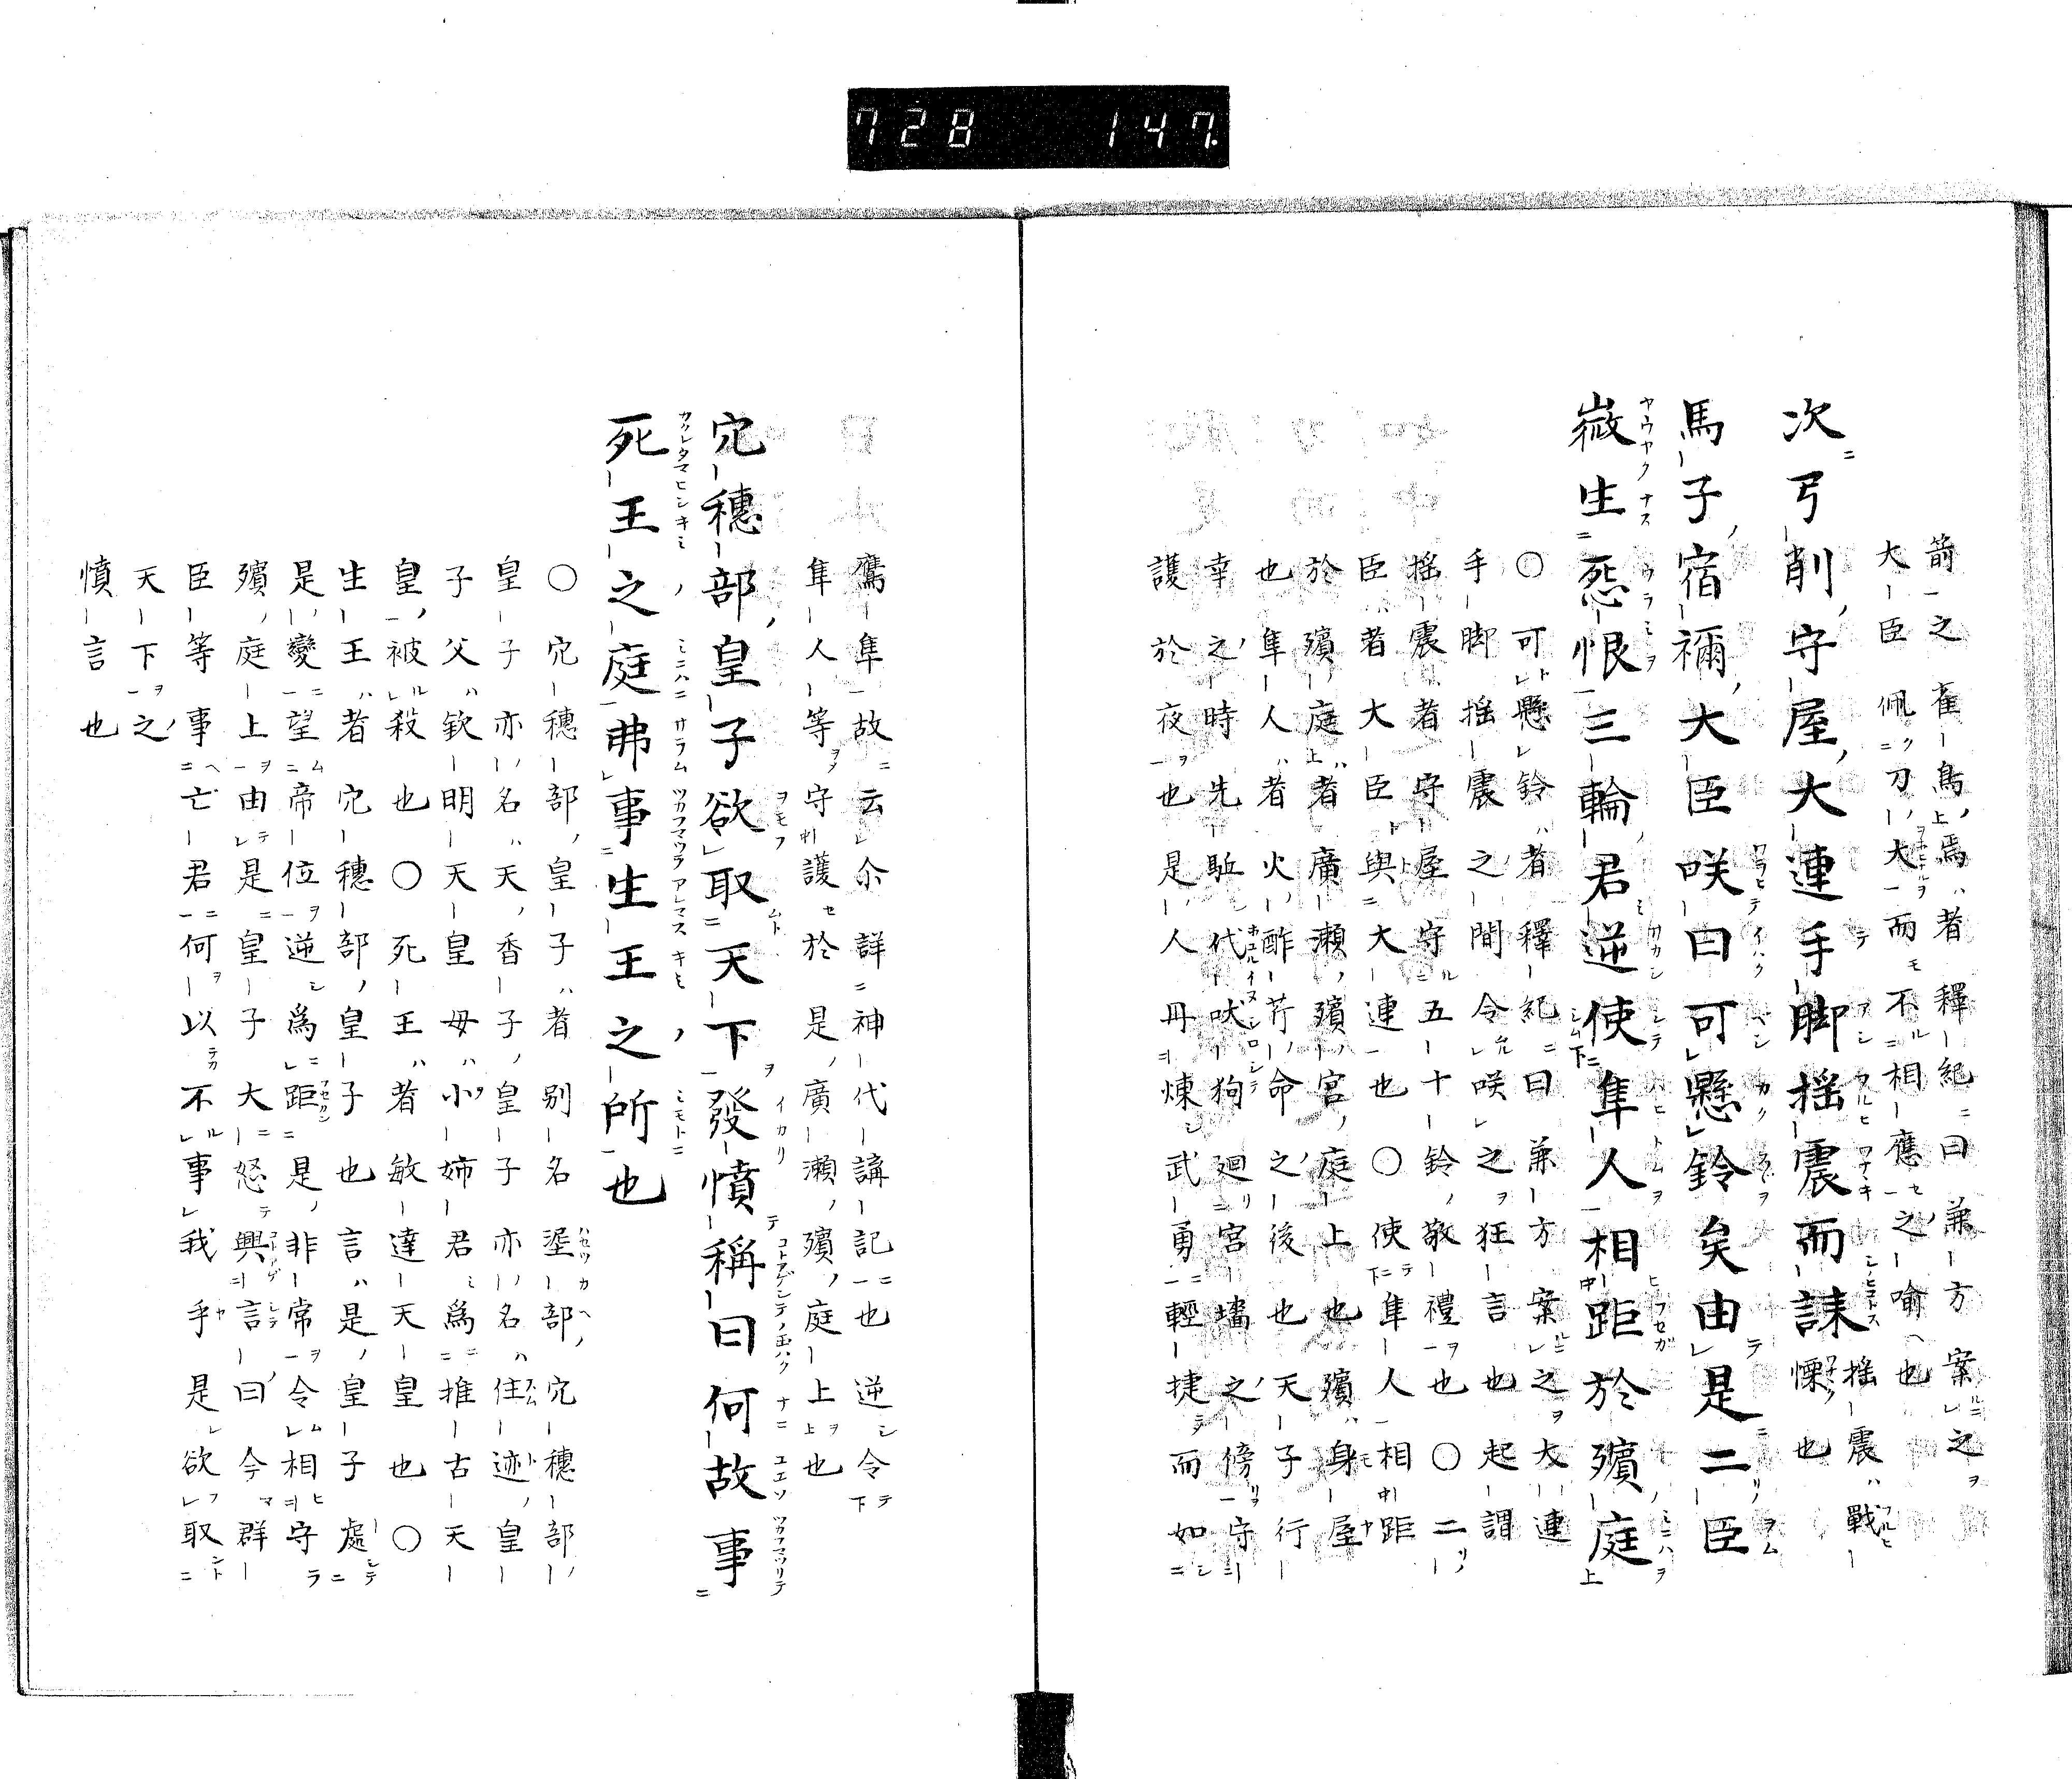 728 147.
箭之雀鳥焉者釋紀曰兼方案之
大臣佩刀大而不相應之喩也
次弓削守屋大連手脚搖震而誄搖震戰慄也
馬子宿禰大臣咲曰可懸鈴矣由是二臣
微生怨恨三輪君逆使隼人相距於殯庭
〇可懸鈴者釋紀曰兼方案之大連
手脚搖震之間令咲之狂言也起謂
搖震者守屋守五十鈴敬禮也〇二
臣者大臣與大連也〇使隼人相距
於殯庭者廣瀬殯宮庭上也殯身屋
也隼人者火酢芹命之後也天子行
幸之時先駈代吠狗廻宮墻之傍守
護於夜也是人丹煉武勇輕捷而如
鷹隼故云尒詳神代講記也逆令
隼人等守護於是廣瀬殯庭上也
穴穗部皇子欲取天下發憤稱曰何故事
死王之庭弗事生王之所也
〇穴穗部皇子者別名埿部穴穗部
皇子亦名天香子皇子亦名住迹皇
子父欽明天皇母小姉君爲推古天
皇被殺也〇死王者敏達天皇也〇
生王者穴穗部皇子也言是皇子處
是變望帝位逆爲距是非常令相守
殯庭上由是皇子大怒興言曰今群
臣等事亡君何以不事我乎是欲取
天下之
憤言也